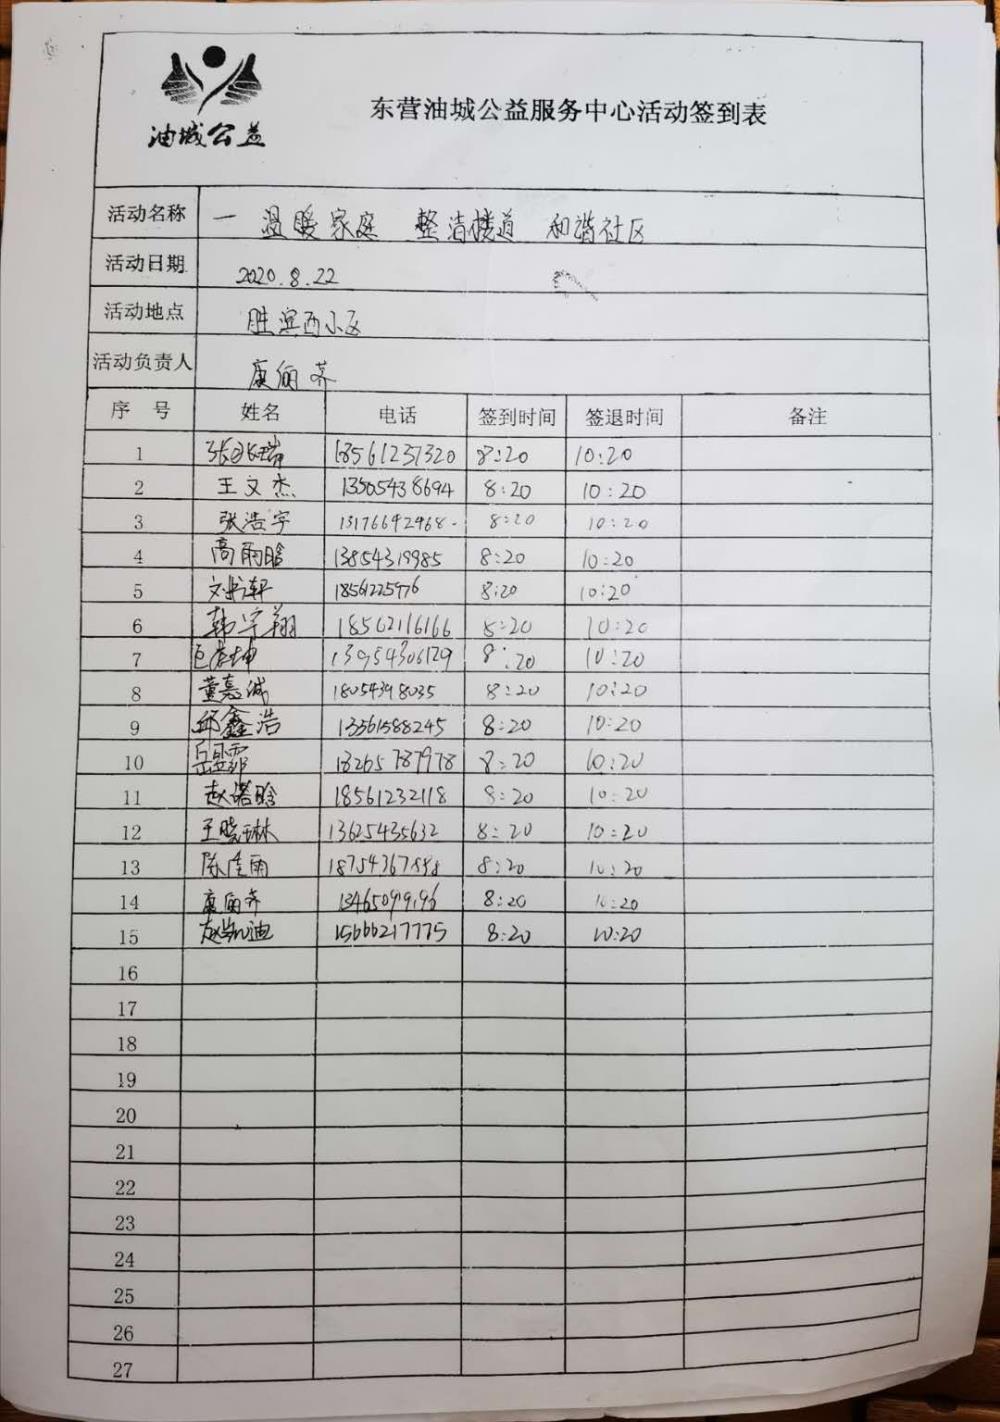 油城公益
东营油城公益服务中心活动签到表
活动名称 一 温暖家庭 整洁楼道 和谐社区
活动日期 2020.8.22
活动地点 胜滨西小区
活动负责人 康俪荞
序 号 姓名 电话 签到时间 签退时间 备注
1 18561237320 8:20 10:20
2 王文杰 13505438694 8:20 10:20
3 张浩宇 13176692968 8:20 10:20
4 高雨晗 13854319985 8:20 10:20
5 刘书轩 18561225976 8:20 10:20
6 韩宇翔 18562116166 8:20 10:20
7 13954306129 8:20 10:20
8 董嘉诚 18054398035 8:20 10:20
9 邱鑫浩 13561588245 8:20 10:20
10 13265787978 8:20 10:20
11 赵诺晗 18561232118 8:20 10:20
12 王晓琳 13625435632 8:20 10:20
13 陈佳雨 8:20 10:20
14 康俪荞 13465099196 8:20 10:20
15 赵凯迪 15666217775 8:20 10:20
16
17
18
19
20
21
22
23
24
25
26
27